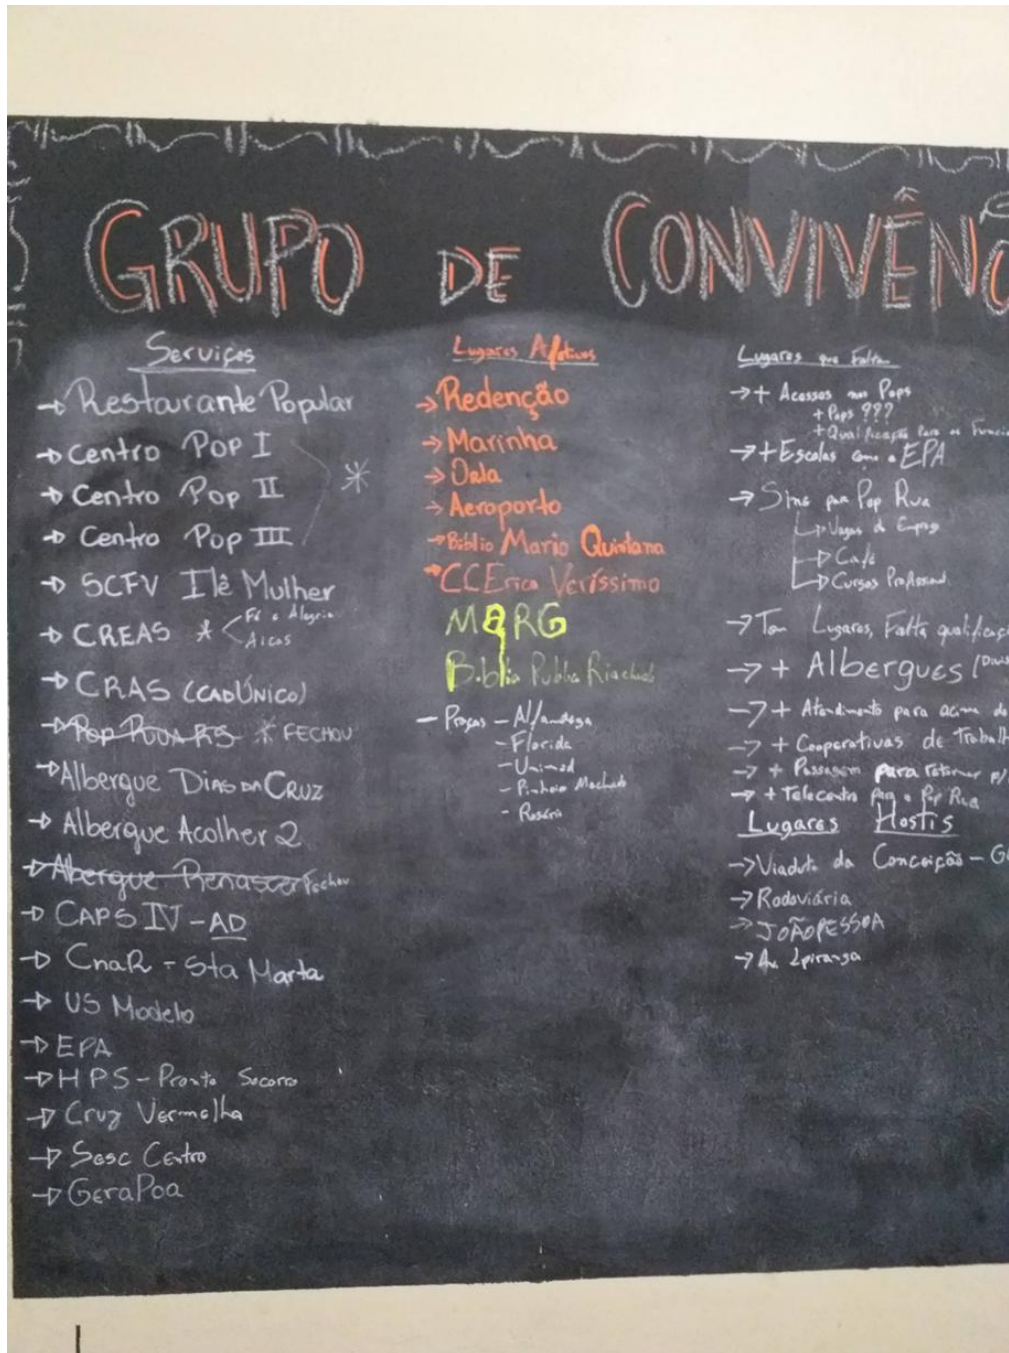 GRUPO DE CONVIVÊNC
Serviços
→ Restaurante Popular
→ Centro Pop I
→ Centro Pop II
→ Centro Pop III
*
→ SCFV Ilê Mulher
→ CREAS * < Fé e Alegria
Aicas
→ CRAS (CADÚNICO)
→ Pop Rua RS * FECHOU
→ Albergue DIAS DA CRUZ
→ Albergue Acolher 2
→ Abergue Renascer Fechou
→ CAPS IV - AD
→ CnaR - Sta Marta
→ US Modelo
→ EPA
→ HPS - Pronto Socorro
→ Cruz Vermelha
→ Sesc Centro
→ GeraPoa
Lugares Afetivos
→ Redenção
→ Marinha
→ Orla
→ Aeroporto
→ Biblio Mario Quintana
→ CCErico Veríssimo
MARG
Biblio Publica Riachuelo
- Praças - Alfandega
- Florida
- Unimed
- Pinheiro Machado
- Rosário
Lugares que Falta
→ + Acessos nos Pops
+ Pops ???
+ Qualificação Para os Funcio
→ + Escolas como o EPA
→ Sine para Pop Rua
→ Vagas de Emprego
→ Café
→ Cursos Profissional
→ Tem Lugares, Falta qualificaçã
→ + Albergues (
→ + Atendimento para acima de
→ + Cooperativas de Trabalh
→ + Passagem para retornar p/
→ + Telecentro para o Pop Rua
Lugares Hostis
→ Viaduto da Conceição - G
→ Rodoviária
→ JOÃO PESSOA
→ Av. Ipiranga